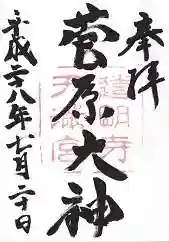 奉拝
菅原大神
道明寺
天満宮
平成二八年七月二十日